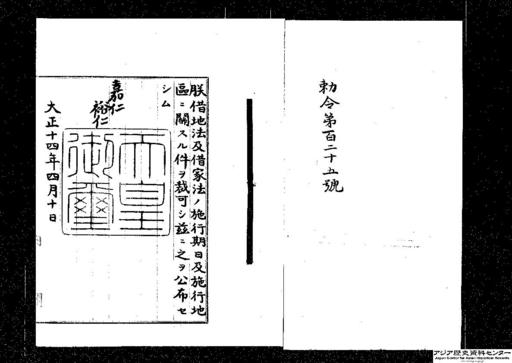 勅令第百二十五號
朕借地法及借家法ノ施行期日及施行地
區ニ關スル件ヲ裁可シ茲ニ之ヲ公布セ
シム
嘉仁
裕仁
天皇
御璽
大正十四年四月十日
アジア歴史資料センター
Japan Center for Asian Historical Records